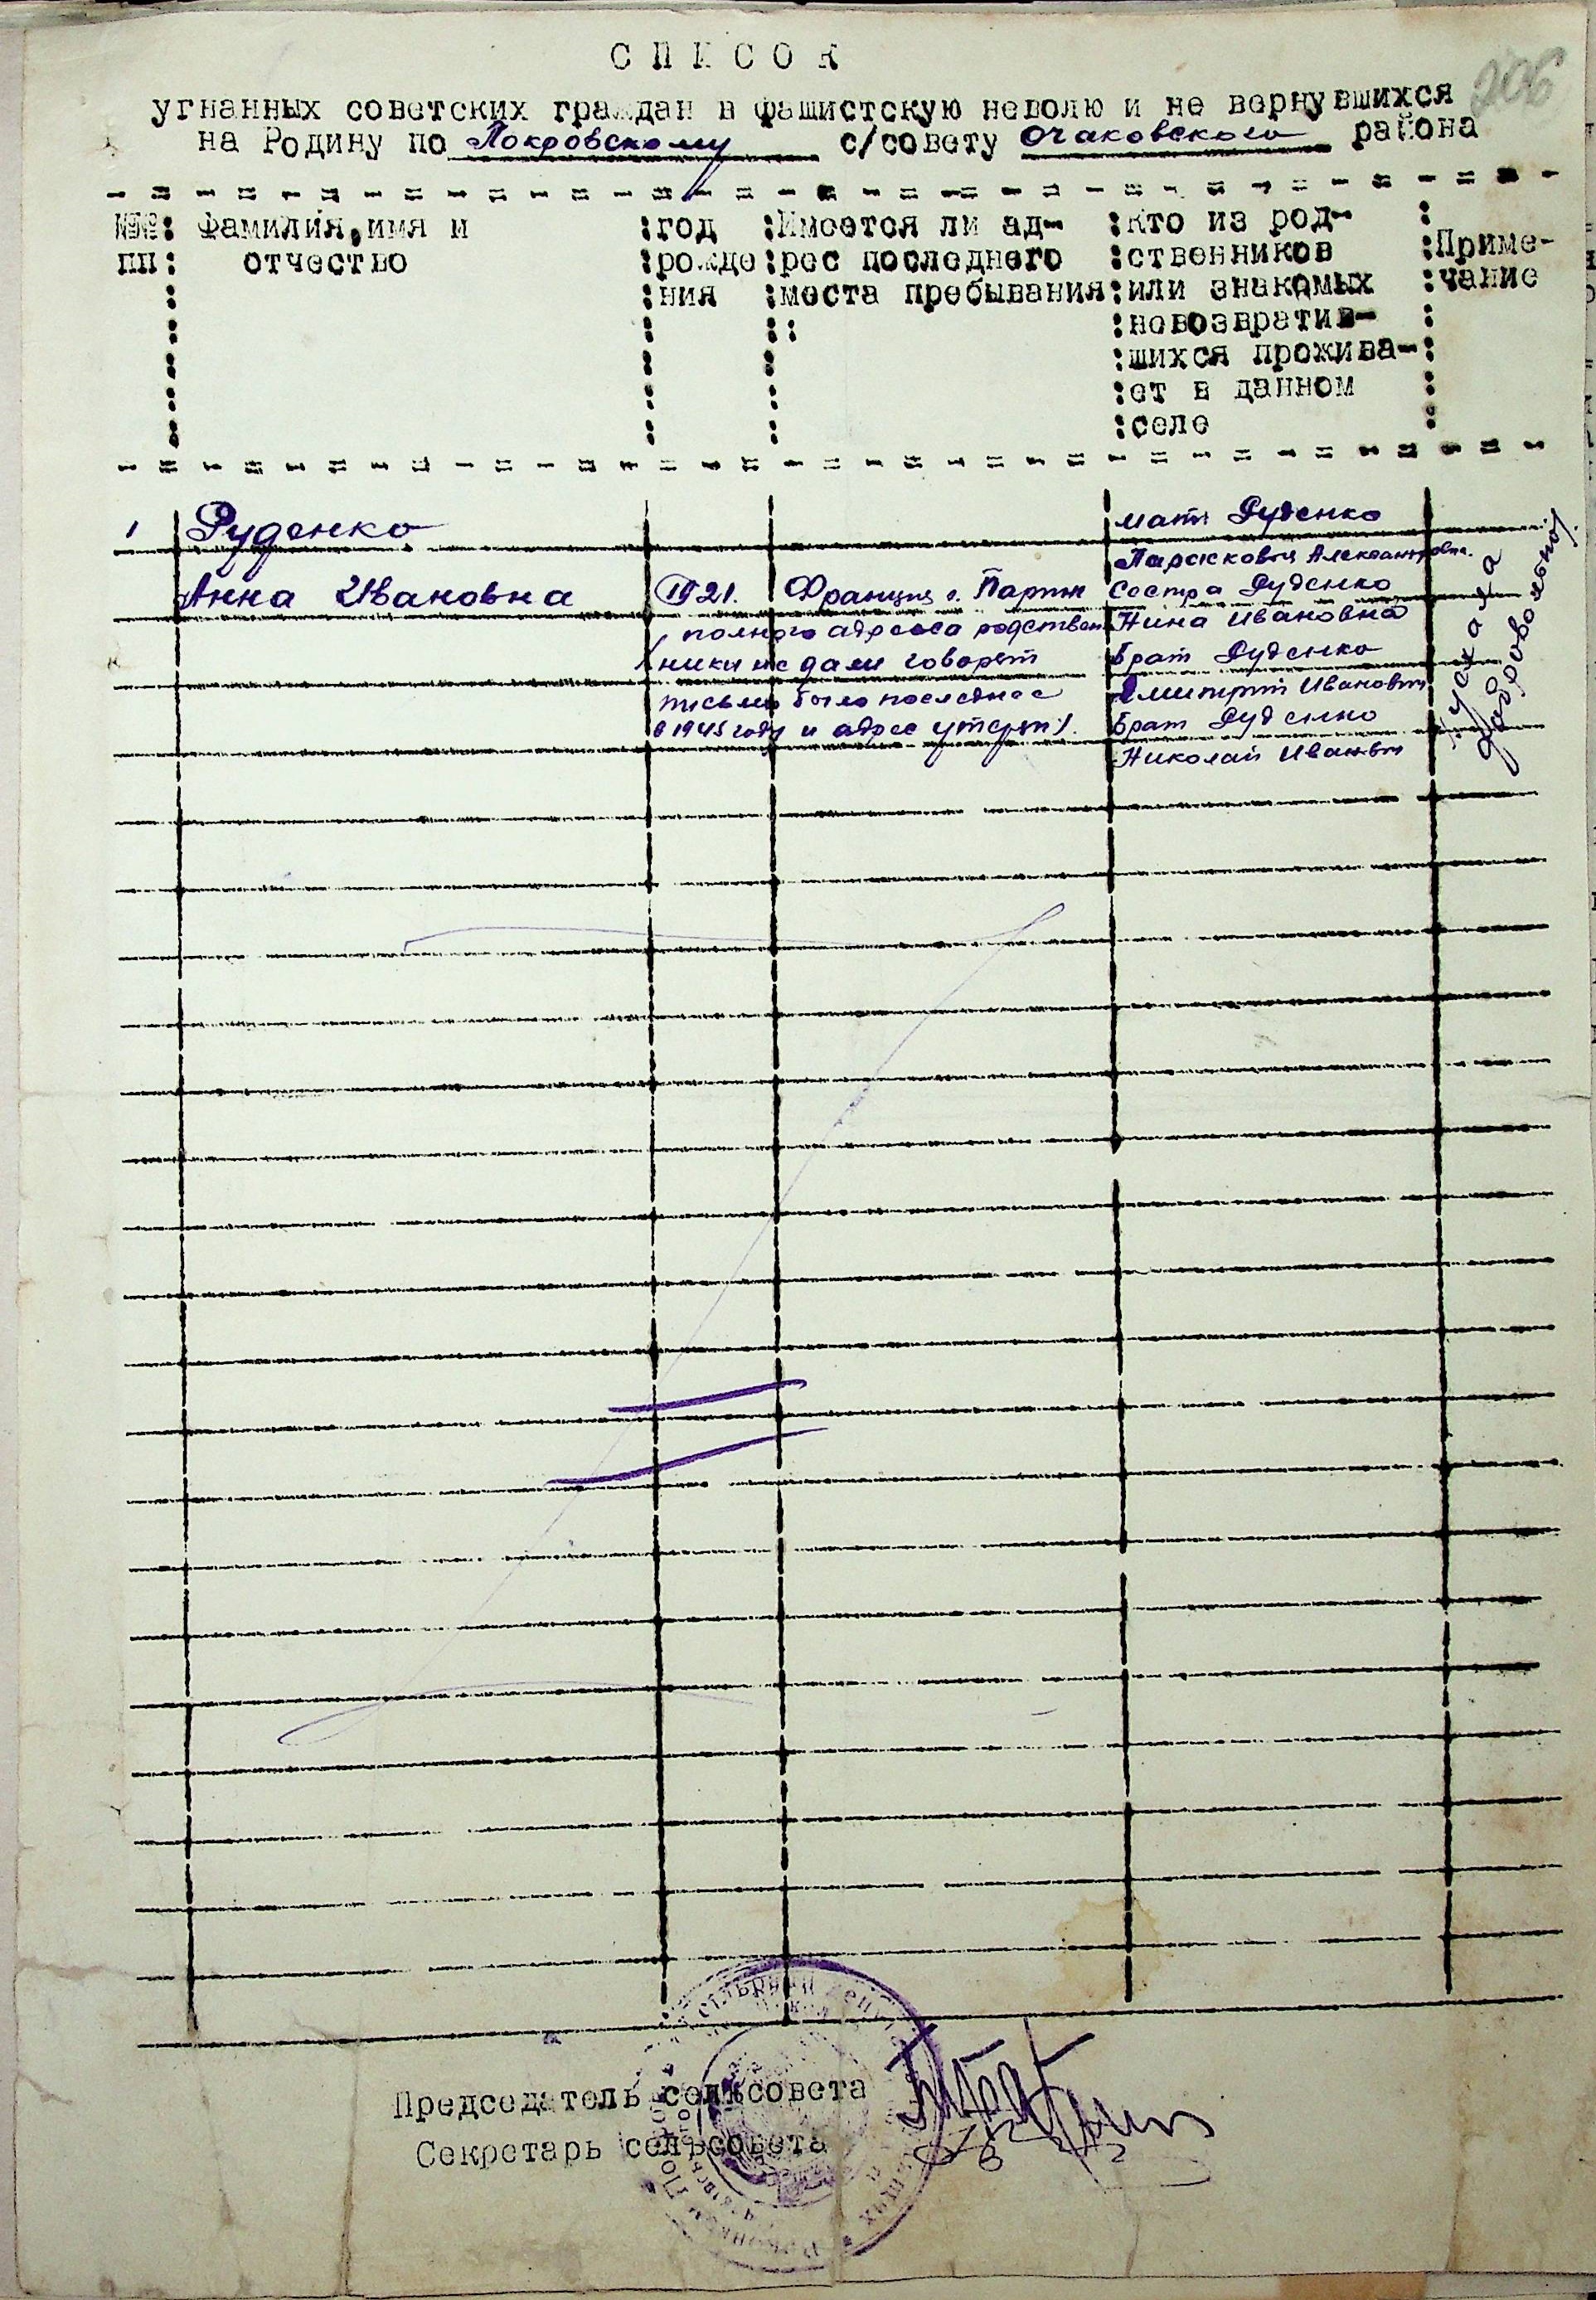 206
СПИСОК
угнанных советских граждан в фашистскую неволю и не вернувшихся
на Родину по Покровскому с/совету Очаковского района
№№ пп : Фамилия, имя и отчество : год рожде ния : Имеется ли ад- рес последнего места пребывания : кто из род- ственников или знакомых невозвратив- шихся прожива- ет в данном селе : Приме- чание
1 Руденко
Анна Ивановна
1921.
Франция г. Париж
( полного адреса родствен
ники не дали говорят
письмо было последнее
в 1945 году и адрес утерян).
мать Руденко
Парасковья Александровна.
Сестра Руденко
Нина Ивановна
Брат Руденко
Дмитрий Иванович
Брат Руденко
Николай Иванович
Уехала
добровольно
Председатель сельсовета
Секретарь сельсовета